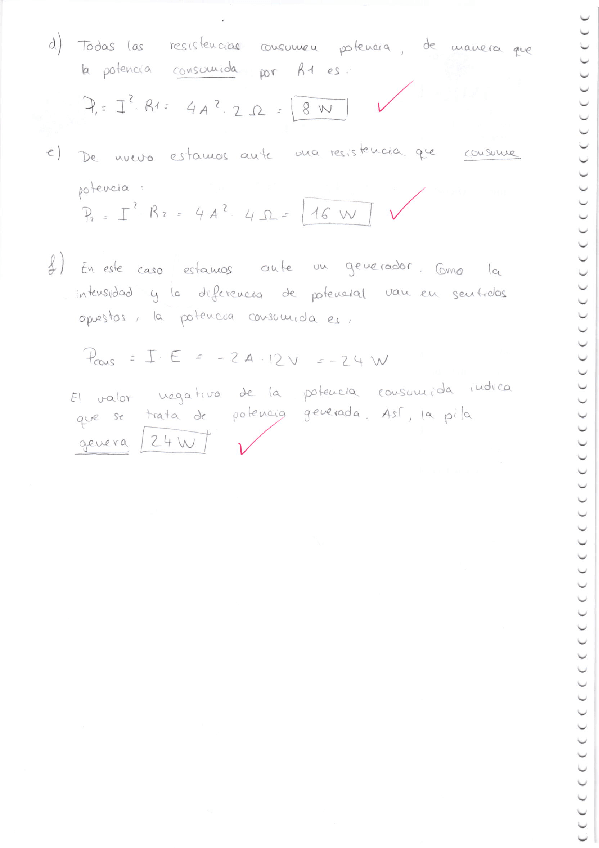 d) Todas las resistencias consumen potencia, de manera que
la potencia consumida por R1 es.
P₁ = I²·R1 = 4A²·2Ω = 8 W
e) De nuevo estamos ante una resistencia que consume
potencia:
P₁ = I² R₂ = 4A²·4Ω = 16 W
f) En este caso estamos ante un generador. Como la
intensidad y la diferencia de potencial van en sentidos
opuestos, la potencia consumida es,
Pcons = I·E = -2A·12V = -24 W
El valor negativo de la potencia consumida indica
que se trata de potencia generada. Así, la pila
genera 24W